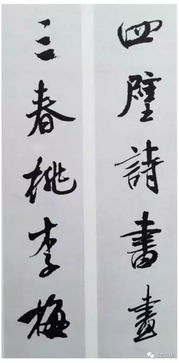 四壁詩書畫
三春桃李梅